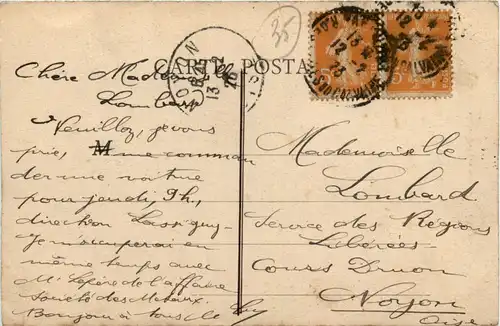 35
CARTE POSTALE
NOYON
OISE
13
Chère Mademoiselle
Lombard
Veuillez, je vous
prie, me comman
der une voiture
pour jeudi, 9h,
direction Lassigny.
Je m'occuperai en
même temps avec
Mr Lefère de l'affaire
Société des Métaux.
Bonjour à tous
Mademoiselle
Lombard
Service des Régions
Libérées
Cours Druon
Noyon
Oise